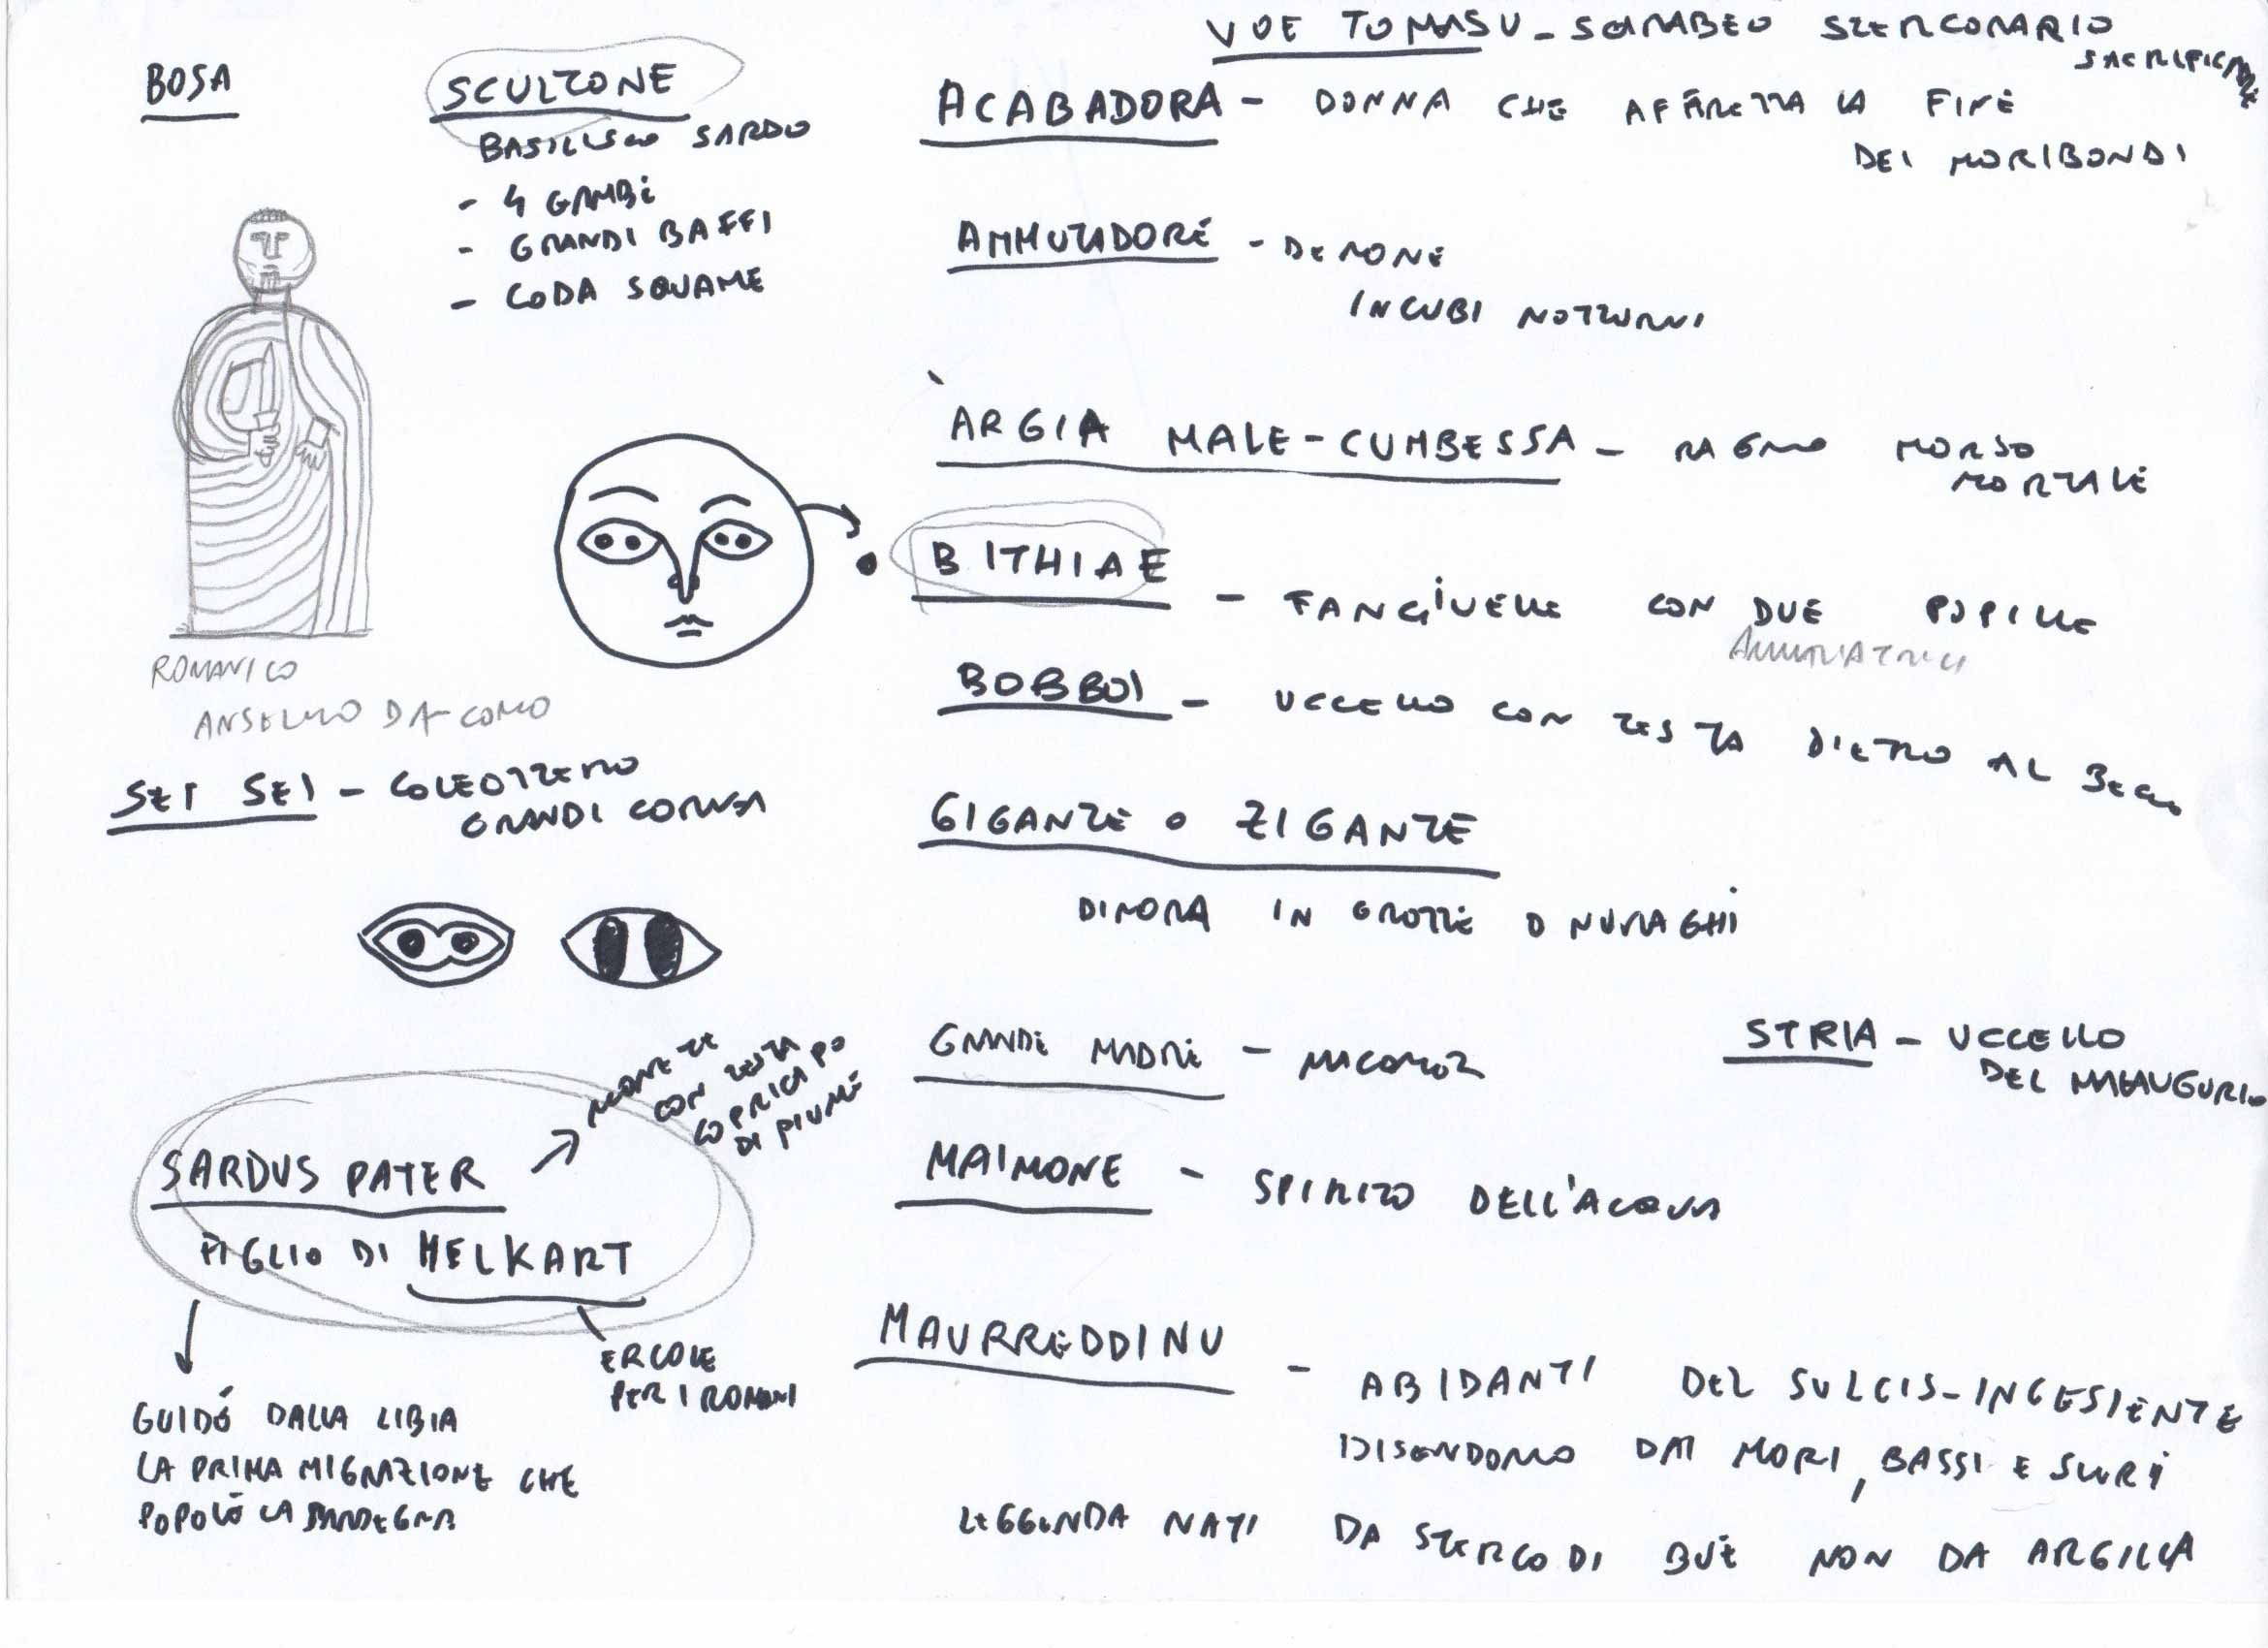 BOSA
SCULTONE
BASILISCO SARDO
- 4 GAMBE
- GRANDI BAFFI
- CODA SQUAME
ROMANICO
ANSELMO DA COMO
SEI SEI - COLEOTTERO
GRANDI CORNA
SARDUS PATER
MONETE
CON TESTA
COPRICAPO
DI PIUME
FIGLIO DI MELKART
ERCOLE
PER I ROMANI
GUIDÓ DALLA LIBIA
LA PRIMA MIGRAZIONE CHE
POPOLÓ LA SARDEGNA
VOE TOMASU - SCARABEO STERCORARIO
ACABADORA - DONNA CHE AFFRETTA LA FINE
DEI MORIBONDI
AMMUTADORE - DEMONE
INCUBI NOTTURNI
ÀRGIA MALE-CUMBESSA - RAGNO MORSO
MORTALE
BITHIAE - FANCIULLE CON DUE PUPILLE
AMMALIATRICI
BOBBOI - UCCELLO CON TESTA DIETRO AL BECCO
GIGANTE O ZIGANTE
DIMORA IN GROTTE O NURAGHI
GRANDE MADRE - MACOMER
STRIA - UCCELLO
DEL MALAUGURIO
MAIMONE - SPIRITO DELL'ACQUA
MAURREDDINU - ABIDANTI DEL SULCIS-INGESIENTE
DISENDONO DAI MORI, BASSI E SCURI
LEGGENDA NATI DA STERCO DI BUE NON DA ARGILLA